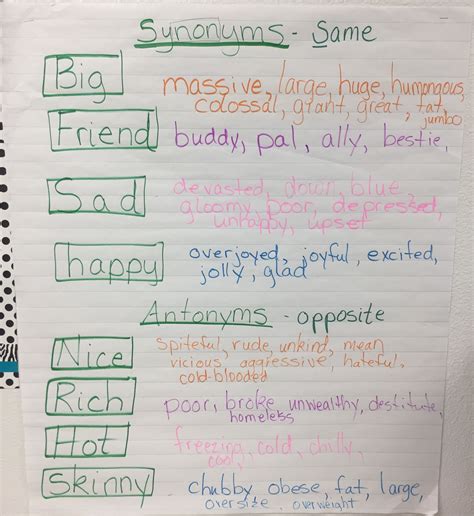 Synonyms - Same
Big
massive, large, huge, humongous,
colossal, giant, great, fat,
jumbo
Friend
buddy, pal, ally, bestie,
Sad
devasted, down, blue,
gloomy, poor, depressed,
unhappy, upset
happy
overjoyed, joyful, excited,
jolly, glad
Antonyms - opposite
Nice
Spiteful, rude, unkind, mean
vicious, aggressive, hateful,
cold-blooded
Rich
poor, broke, unwealthy, destitute,
homeless
Hot
freezing, cold, chilly,
cool,
Skinny
chubby, obese, fat, large,
oversite, overweight